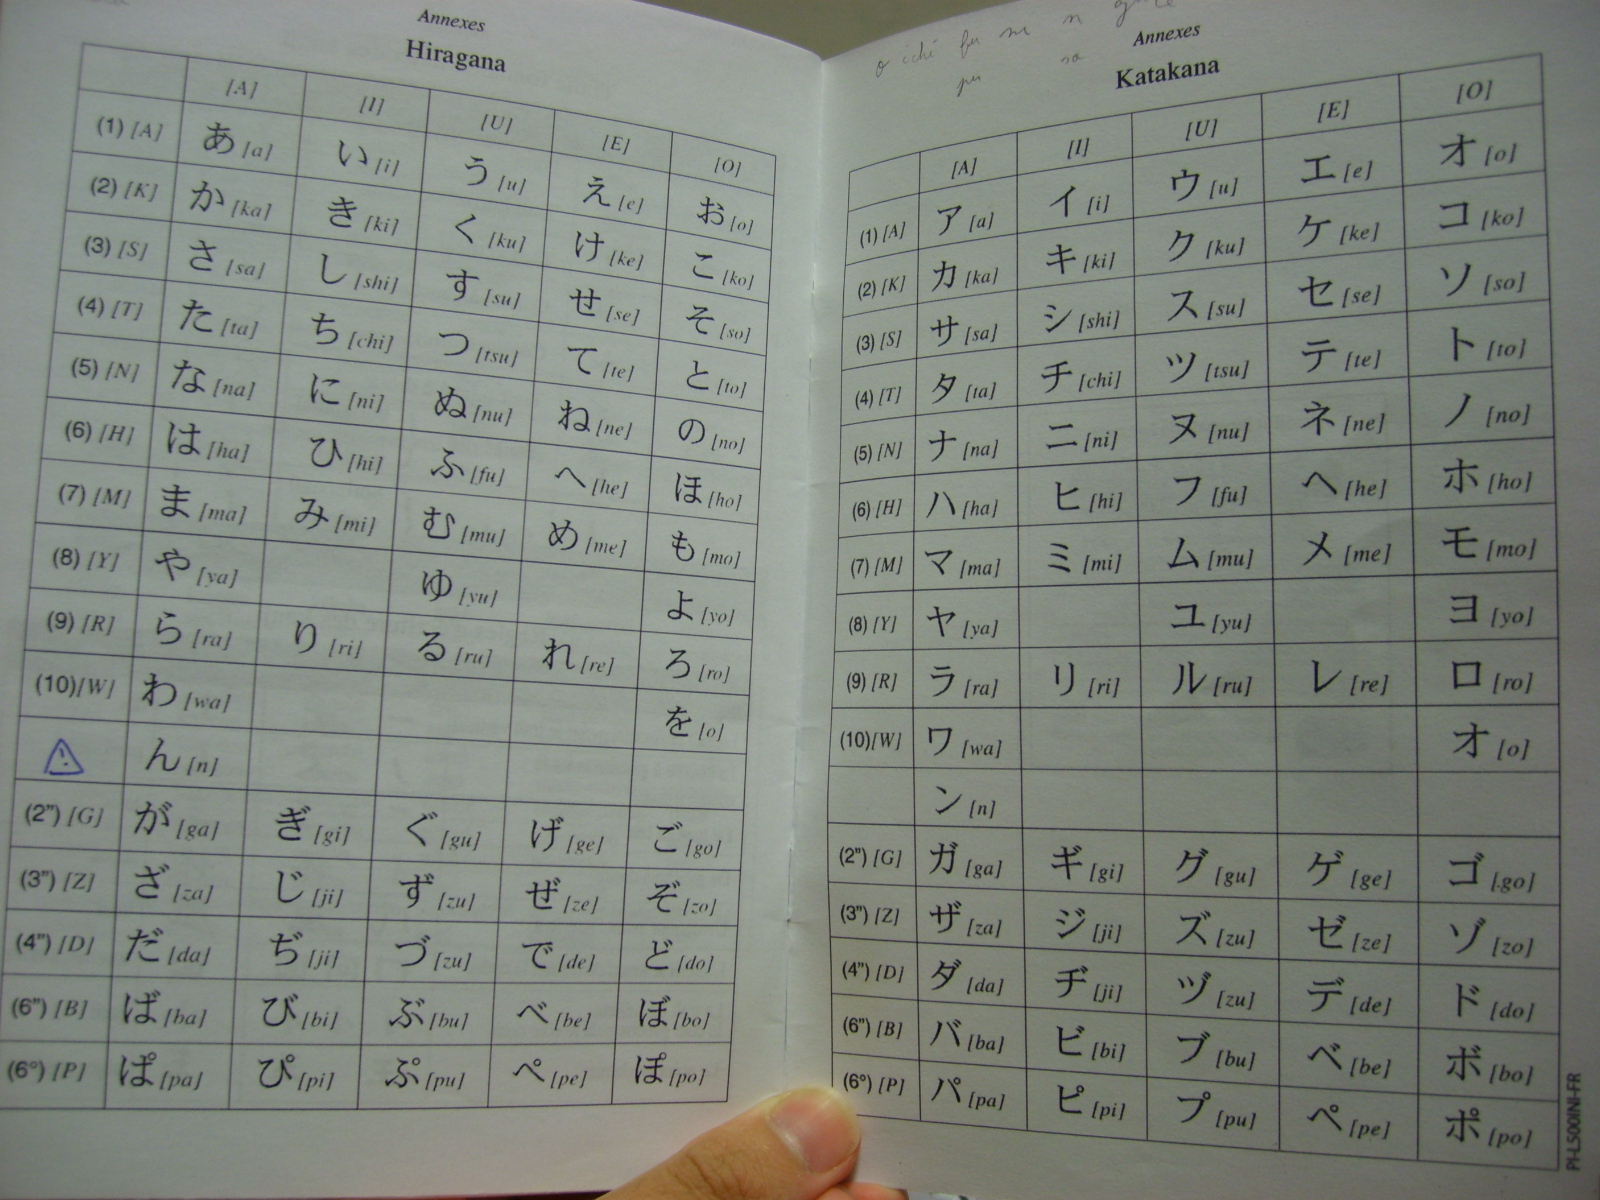 Annexes
Hiragana
[A] [I] [U] [E] [O]
(1) [A] あ [a] い [i] う [u] え [e] お [o]
(2) [K] か [ka] き [ki] く [ku] け [ke] こ [ko]
(3) [S] さ [sa] し [shi] す [su] せ [se] そ [so]
(4) [T] た [ta] ち [chi] つ [tsu] て [te] と [to]
(5) [N] な [na] に [ni] ぬ [nu] ね [ne] の [no]
(6) [H] は [ha] ひ [hi] ふ [fu] へ [he] ほ [ho]
(7) [M] ま [ma] み [mi] む [mu] め [me] も [mo]
(8) [Y] や [ya] ゆ [yu] よ [yo]
(9) [R] ら [ra] り [ri] る [ru] れ [re] ろ [ro]
(10)[W] わ [wa] を [o]
ん [n]
(2") [G] が [ga] ぎ [gi] ぐ [gu] げ [ge] ご [go]
(3") [Z] ざ [za] じ [ji] ず [zu] ぜ [ze] ぞ [zo]
(4") [D] だ [da] ぢ [ji] づ [zu] で [de] ど [do]
(6") [B] ば [ba] び [bi] ぶ [bu] べ [be] ぼ [bo]
(6°) [P] ぱ [pa] ぴ [pi] ぷ [pu] ぺ [pe] ぽ [po]
o ichi fu
Annexes
Katakana
[A] [I] [U] [E] [O]
(1) [A] ア [a] イ [i] ウ [u] エ [e] オ [o]
(2) [K] カ [ka] キ [ki] ク [ku] ケ [ke] コ [ko]
(3) [S] サ [sa] シ [shi] ス [su] セ [se] ソ [so]
(4) [T] タ [ta] チ [chi] ツ [tsu] テ [te] ト [to]
(5) [N] ナ [na] ニ [ni] ヌ [nu] ネ [ne] ノ [no]
(6) [H] ハ [ha] ヒ [hi] フ [fu] ヘ [he] ホ [ho]
(7) [M] マ [ma] ミ [mi] ム [mu] メ [me] モ [mo]
(8) [Y] ヤ [ya] ユ [yu] ヨ [yo]
(9) [R] ラ [ra] リ [ri] ル [ru] レ [re] ロ [ro]
(10)[W] ワ [wa] オ [o]
ン [n]
(2") [G] ガ [ga] ギ [gi] グ [gu] ゲ [ge] ゴ [go]
(3") [Z] ザ [za] ジ [ji] ズ [zu] ゼ [ze] ゾ [zo]
(4") [D] ダ [da] ヂ [ji] ヅ [zu] デ [de] ド [do]
(6") [B] バ [ba] ビ [bi] ブ [bu] ベ [be] ボ [bo]
(6°) [P] パ [pa] ピ [pi] プ [pu] ペ [pe] ポ [po]